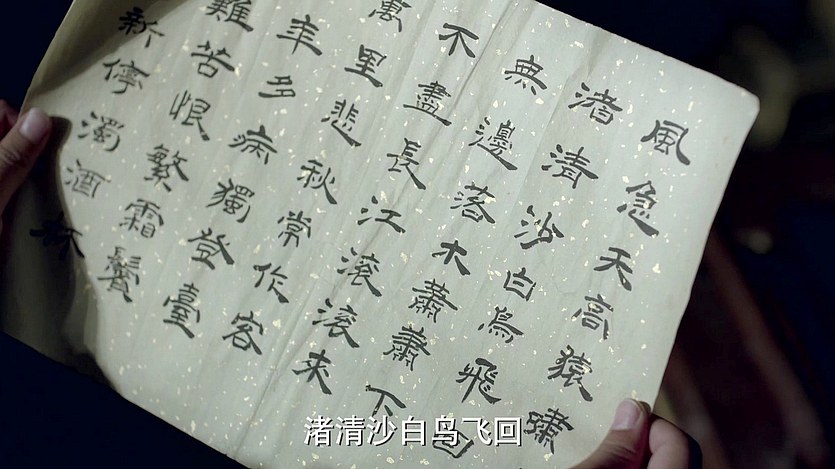 風急天高猿嘯
渚清沙白鳥飛回
無邊落木蕭蕭下
不盡長江滾滾來
萬里悲秋常作客
年多病獨登臺
難苦恨繁霜鬢
新停濁酒杯
渚清沙白鸟飞回